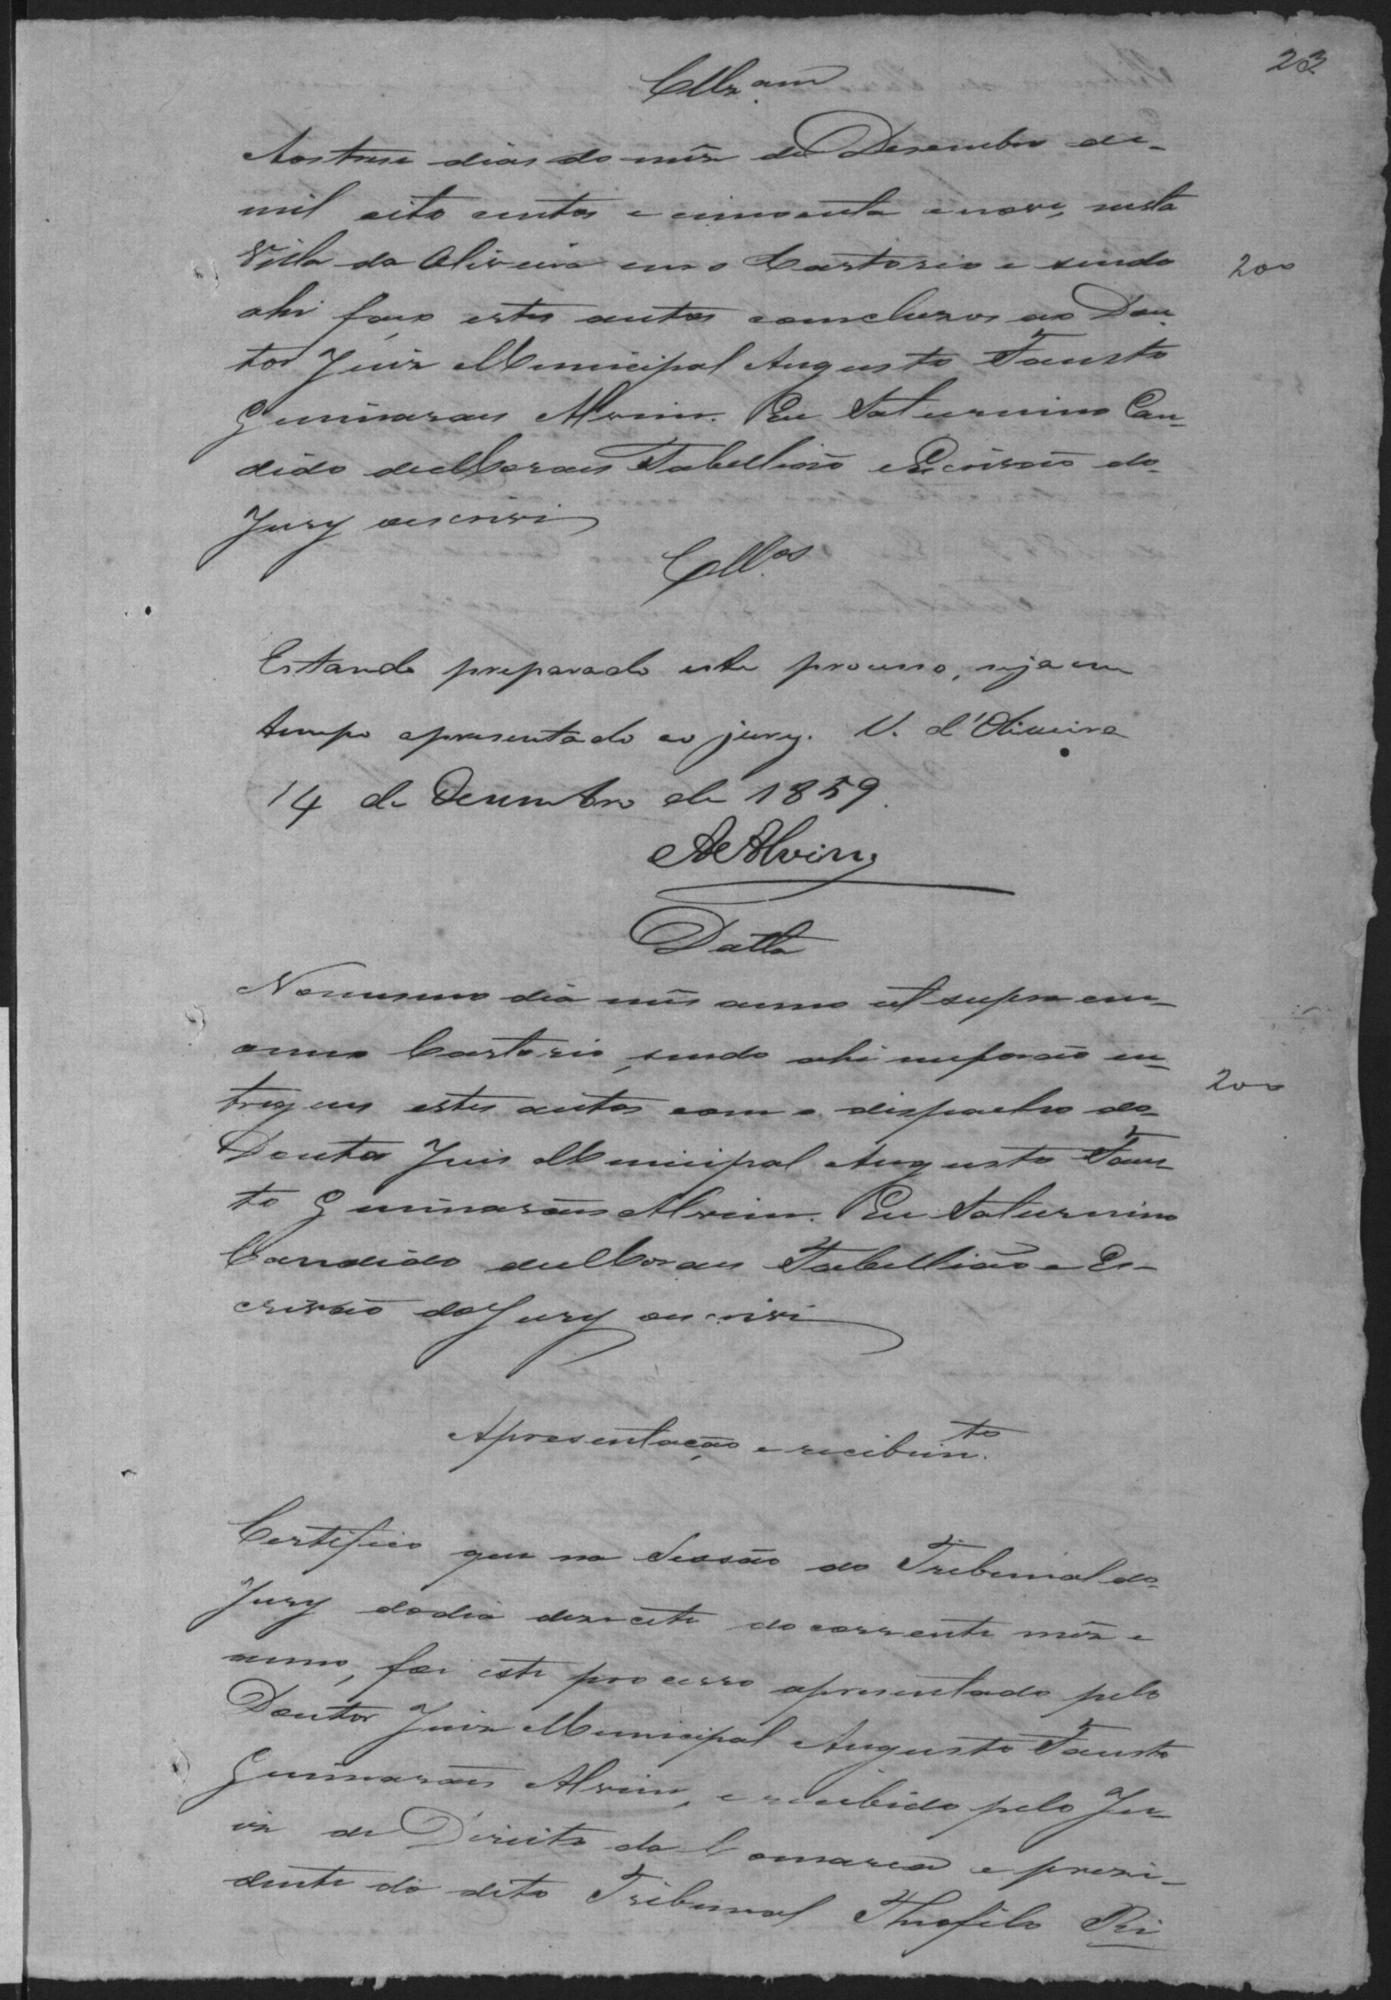 23
Cllz.am
Aos trese dias do mêz de Desembro de
mil oito centos e cincoenta e nove, nesta
Villa da Oliveira em o Cartorio e sendo
200
ahi faço estes autos comcluzos ao Dou
tor Juiz Municipal Augusto Fausto
Guimaraes Alvim. Eu Saturnino Can
dido de Moraes Tabellião e Escrivão do
Jury o escrivi
Cllos
Estando preparado este processo, seja em
tempo apresentado ao jury. V. d'Oliveira
14 de Dezembro de 1859.
A Alvim
Datta
No mesmo dia mês anno ut supra em
o meu Cartorio, sendo ahi me forão en
200
tregues estes autos com o dispacho do
Doutor Juis Municipal Augusto Faus
to Guimarães Alvim. Eu Saturnino
Candido de Moraes Tabellião e Es-
crivão do Jury o escrivi
Apresentação e recibimto.
Certifico que na Sessão do Tribunal do
Jury do dia dezecete do corrente mêz e
anno, foi este processo apresentado pelo
Doutor Juiz Municipal Augusto Fausto
Guimarães Alvim, e recibido pelo Ju-
iz de Direito da Comarca e prezi-
dente do dito Tribunal Theofilo Ri